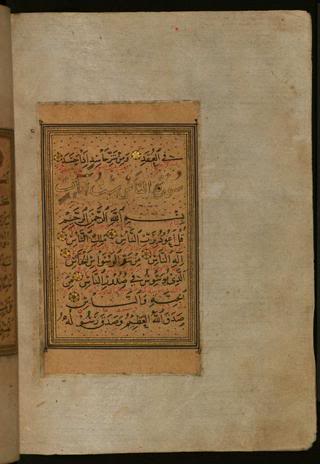 في العقد ومن شر حاسد إذا حسد
سورة الناس ست آيات
بسم الله الرحمن الرحيم
قل أعوذ برب الناس ملك الناس
إله الناس من شر الوسواس الخناس
الذي يوسوس في صدور الناس من
الجنة والناس
صدق الله العظيم وصدق رسوله